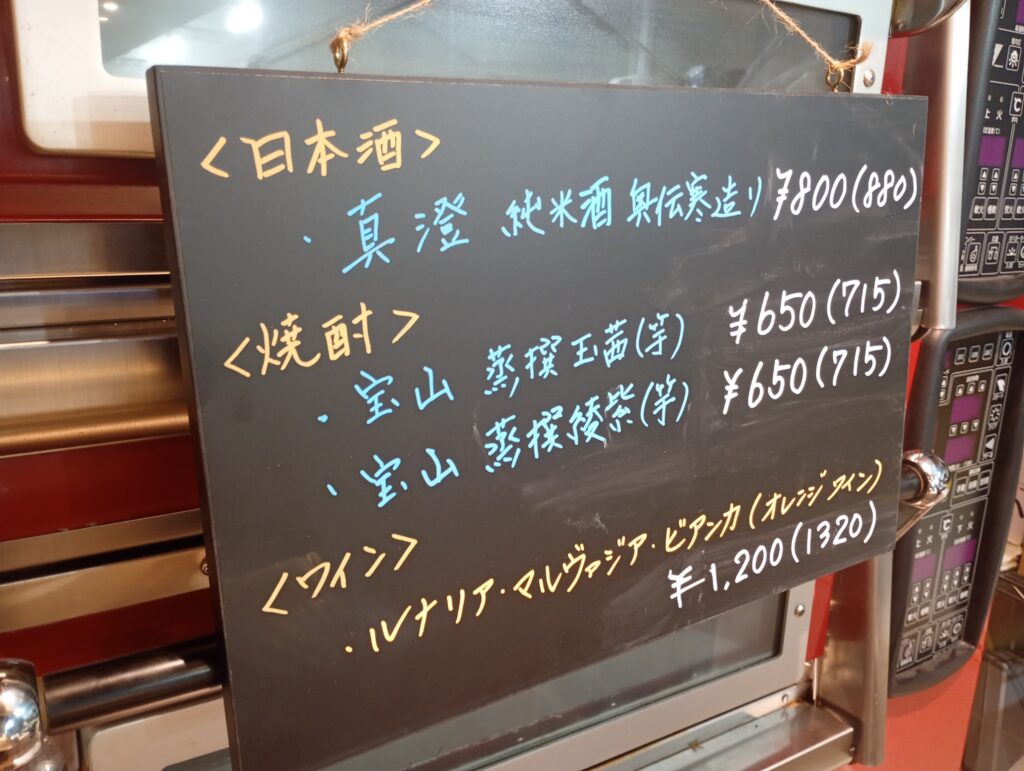 <日本酒>
・真澄 純米酒 奥伝寒造り ¥800(880)
<焼酎>
・宝山 蒸撰玉茜(芋) ¥650(715)
・宝山 蒸撰綾紫(芋) ¥650(715)
<ワイン>
・ルナリア・マルヴァジア・ビアンカ(オレンジワイン)
¥1,200(1320)
上火
℃
℃
上火
下火